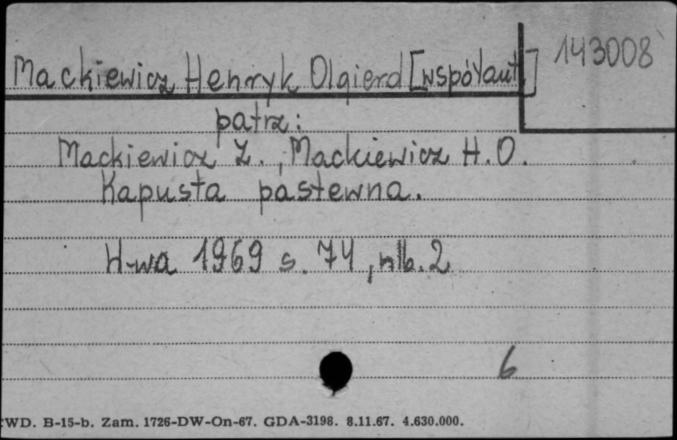 Mackiewicz Henryk Olgierd [współaut.] 143008
patrz:
Mackiewicz Z., Mackiewicz H.O.
Kapusta pastewna.
W-wa 1969 s. 74, nlb. 2
6
WD. B-15-b. Zam. 1726-DW-On-67. GDA-3198. 8.11.67. 4.630.000.